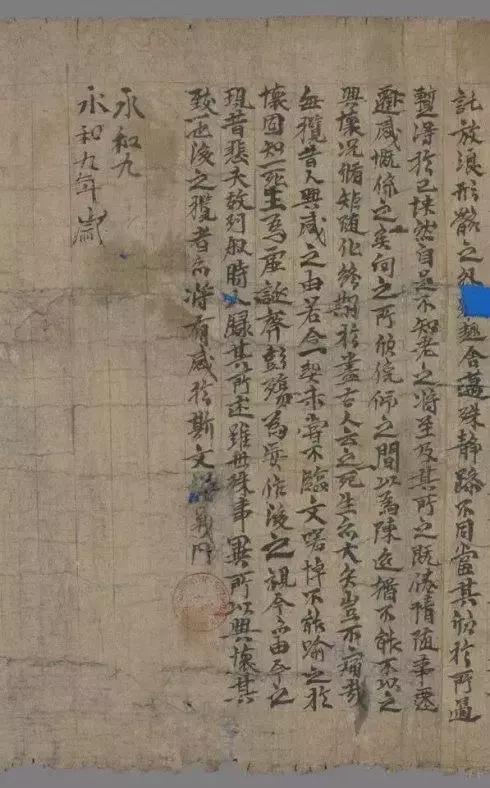 託放浪形骸之外趣舍萬殊静躁不同當其欣扵所遇
蹔得扵己怏然自足不知老之將至及其所之既惓情随事遷
感慨係之矣向之所欣俛仰之間以為陳迹猶不能不以之
興懷况脩矩随化終期扵盡古人云之死生亦大矣豈不痛哉
每攬昔人興感之由若合一契未嘗不臨文嗟悼不能喻之扵
懷固知一死生為虚誕齊彭殤為妄作後之視今亦由今之
視昔悲夫故列叙時人録其所述雖世殊事異所以興懷其
致一也後之攬者亦將有感扵斯文
永和九
永和九年歲